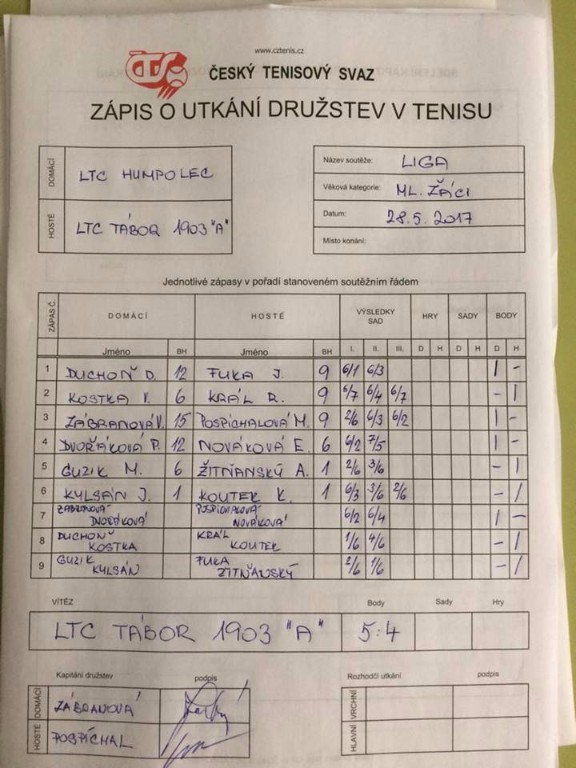 www.cztenis.cz
ČTS ČESKÝ TENISOVÝ SVAZ
ZÁPIS O UTKÁNÍ DRUŽSTEV V TENISU
DOMÁCÍ LTC HUMPOLEC
HOSTÉ LTC TÁBOR 1903 "A"
Název soutěže: LIGA
Věková kategorie: ML. ŽÁCI
Datum: 28.5.2017
Místo konání:
Jednotlivé zápasy v pořadí stanoveném soutěžním řádem
ZÁPAS Č. DOMÁCÍ HOSTÉ VÝSLEDKY SAD HRY SADY BODY
Jméno BH Jméno BH I. II. III. D H D H D H
1 DUCHOŇ D. 12 FUKA J. 9 6/1 6/3 1 -
2 KOSTKA V. 6 KRÁL R. 9 6/7 6/4 6/7 - 1
3 ZÁBRANOVÁ V. 15 POSPÍCHALOVÁ M. 9 2/6 6/3 6/2 1 -
4 DVOŘÁKOVÁ P. 12 NOVÁKOVÁ E. 6 6/2 7/5 1 -
5 GUZIK M. 6 ŽITŇANSKÝ A. 1 2/6 3/6 - 1
6 KYLSÁN J. 1 KOUTEK K. 1 6/3 3/6 2/6 - 1
7 ZÁBRANOVÁ DVOŘÁKOVÁ POSPÍCHALOVÁ NOVÁKOVÁ 6/2 6/4 1 -
8 DUCHOŇ KOSTKA KRÁL KOUTEK 1/6 4/6 - 1
9 GUZIK KYLSÁN FUKA ŽITŇANSKÝ 2/6 1/6 - 1
VÍTĚZ Body Sady Hry
LTC TÁBOR 1903 "A" 5:4
Kapitáni družstev podpis
DOMÁCÍ ZÁBRANOVÁ
HOSTÉ POSPÍCHAL
Rozhodčí utkání podpis
VRCHNÍ
HLAVNÍ